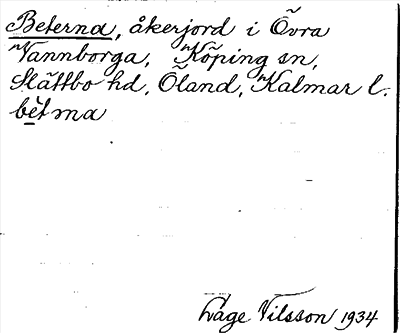 Beterna, åkerjord i Övra
Vannborga, Köping sn,
Slättbo hd, Öland, Kalmar l.
bètma
Låge Nilsson 1934